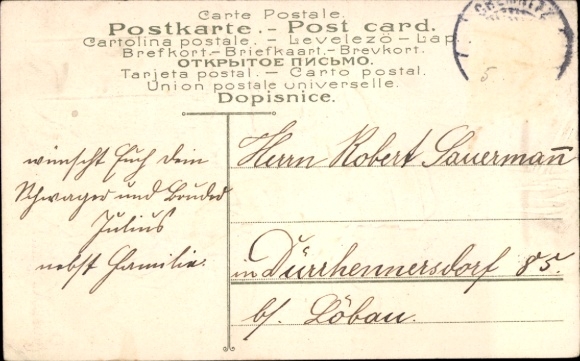 Carte Postale.
Postkarte. - Post card.
Cartolina postale. - Levelező - Lap.
Brefkort.- Briefkaart.- Brevkort.
ОТКРЫТОЕ ПИСЬМО.
Tarjeta postal. - Carto postal.
Union postale universelle.
Dopisnice.
5
wünscht Euch dein
Schwager und Bruder
Julius
nebst Familie.
Herrn Robert Sauermann
in Dürrhennersdorf 85.
b/. Löbau.